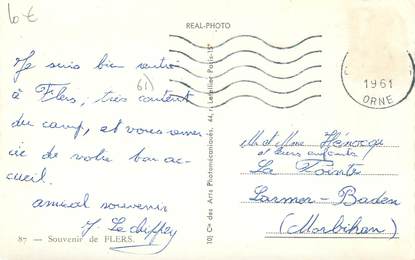 6€
REAL-PHOTO
Je suis bien rentré
à Flers, très content
du camp, et vous remer-
cie de votre bon ac-
cueil.
amical souvenir
J. Le
61)
87 — Souvenir de FLERS.
10) Cie des Arts Photomécaniques, 44, r. Letellier Paris-15e
1961
ORNE
Mr et Mme
et leurs enfants
La Pointe
Larmor-Baden
(Morbihan)